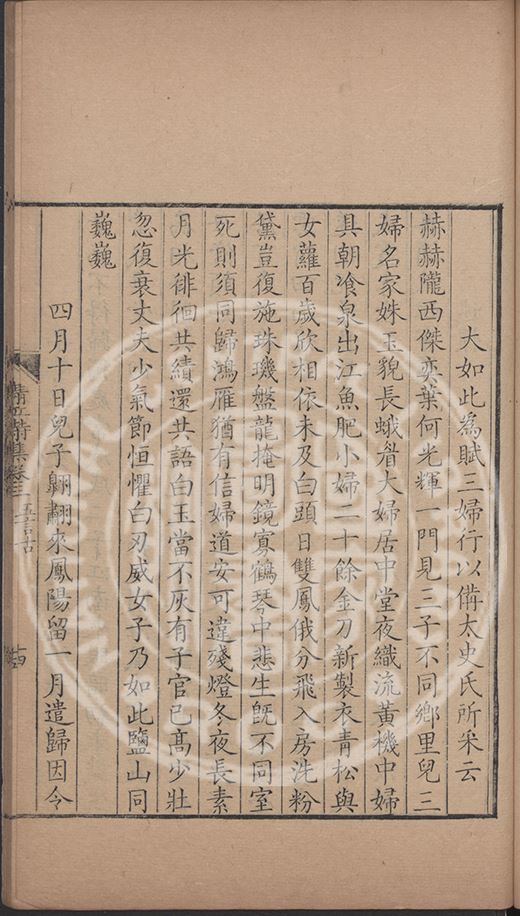 大如此為賦三婦行以備太史氏所采云
赫赫隴西傑奕葉何光輝一門見三子不同鄉里兒三
婦名家姝玉貌長蛾眉大婦居中堂夜織流黃機中婦
具朝飡泉出江魚肥小婦二十餘金刀新製衣青松與
女蘿百歲欣相依未及白頭日雙鳳俄分飛入房洗粉
黛豈復施珠璣盤龍掩明鏡寡鶴琴中悲生旣不同室
死則須同歸鴻雁猶有信婦道安可違殘燈冬夜長素
月光徘徊共績還共語白玉當不灰有子官已高少壯
忽復衰丈夫少氣節恒懼白刃威女子乃如此鹽山同
巍巍
四月十日兒子翺翻來鳳陽留一月遣歸因今
清江詩集卷三 五言古